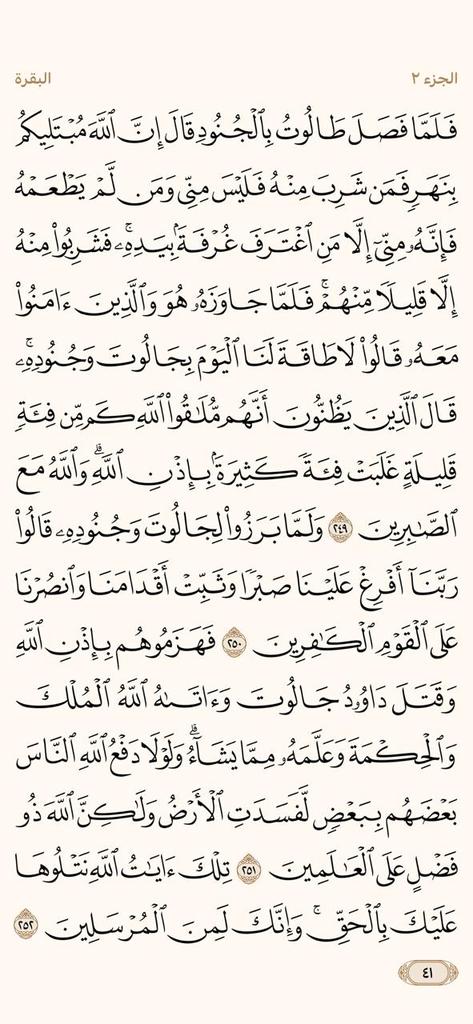 الجزء ٢
البقرة
فَلَمَّا فَصَلَ طَالُوتُ بِٱلْجُنُودِ قَالَ إِنَّ ٱللَّهَ مُبْتَلِيكُم
بِنَهَرٍ فَمَن شَرِبَ مِنْهُ فَلَيْسَ مِنِّي وَمَن لَّمْ يَطْعَمْهُ
فَإِنَّهُۥ مِنِّيٓ إِلَّا مَنِ ٱغْتَرَفَ غُرْفَةَۢ بِيَدِهِۦۚ فَشَرِبُوا۟ مِنْهُ
إِلَّا قَلِيلًا مِّنْهُمْۚ فَلَمَّا جَاوَزَهُۥ هُوَ وَٱلَّذِينَ ءَامَنُوا۟
مَعَهُۥ قَالُوا۟ لَا طَاقَةَ لَنَا ٱلْيَوْمَ بِجَالُوتَ وَجُنُودِهِۦۚ
قَالَ ٱلَّذِينَ يَظُنُّونَ أَنَّهُم مُّلَـٰقُوا۟ ٱللَّهِ كَم مِّن فِئَةٍ
قَلِيلَةٍ غَلَبَتْ فِئَةً كَثِيرَةَۢ بِإِذْنِ ٱللَّهِۗ وَٱللَّهُ مَعَ
ٱلصَّـٰبِرِينَ ٢٤٩ وَلَمَّا بَرَزُوا۟ لِجَالُوتَ وَجُنُودِهِۦ قَالُوا۟
رَبَّنَآ أَفْرِغْ عَلَيْنَا صَبْرًا وَثَبِّتْ أَقْدَامَنَا وَٱنصُرْنَا
عَلَى ٱلْقَوْمِ ٱلْكَـٰفِرِينَ ٢٥٠ فَهَزَمُوهُم بِإِذْنِ ٱللَّهِ
وَقَتَلَ دَاوُۥدُ جَالُوتَ وَءَاتَىٰهُ ٱللَّهُ ٱلْمُلْكَ
وَٱلْحِكْمَةَ وَعَلَّمَهُۥ مِمَّا يَشَآءُۗ وَلَوْلَا دَفْعُ ٱللَّهِ ٱلنَّاسَ
بَعْضَهُم بِبَعْضٍ لَّفَسَدَتِ ٱلْأَرْضُ وَلَـٰكِنَّ ٱللَّهَ ذُو
فَضْلٍ عَلَى ٱلْعَـٰلَمِينَ ٢٥١ تِلْكَ ءَايَـٰتُ ٱللَّهِ نَتْلُوهَا
عَلَيْكَ بِٱلْحَقِّۚ وَإِنَّكَ لَمِنَ ٱلْمُرْسَلِينَ ٢٥٢
٤١